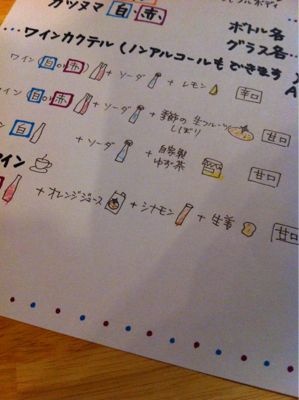 カツヌマ 白・赤
フルボディ
ボトル名
グラス名…
…ワインカクテル(ノンアルコールもできます
ワイン(白or赤) + ソーダ + レモン 辛口
ワイン(白or赤) + ソーダ + 季節の生フルーツしぼり 甘口
白 + ソーダ + 自家製ゆず茶 甘口
イン
+ オレンジジュース + シナモン + 生姜 甘口